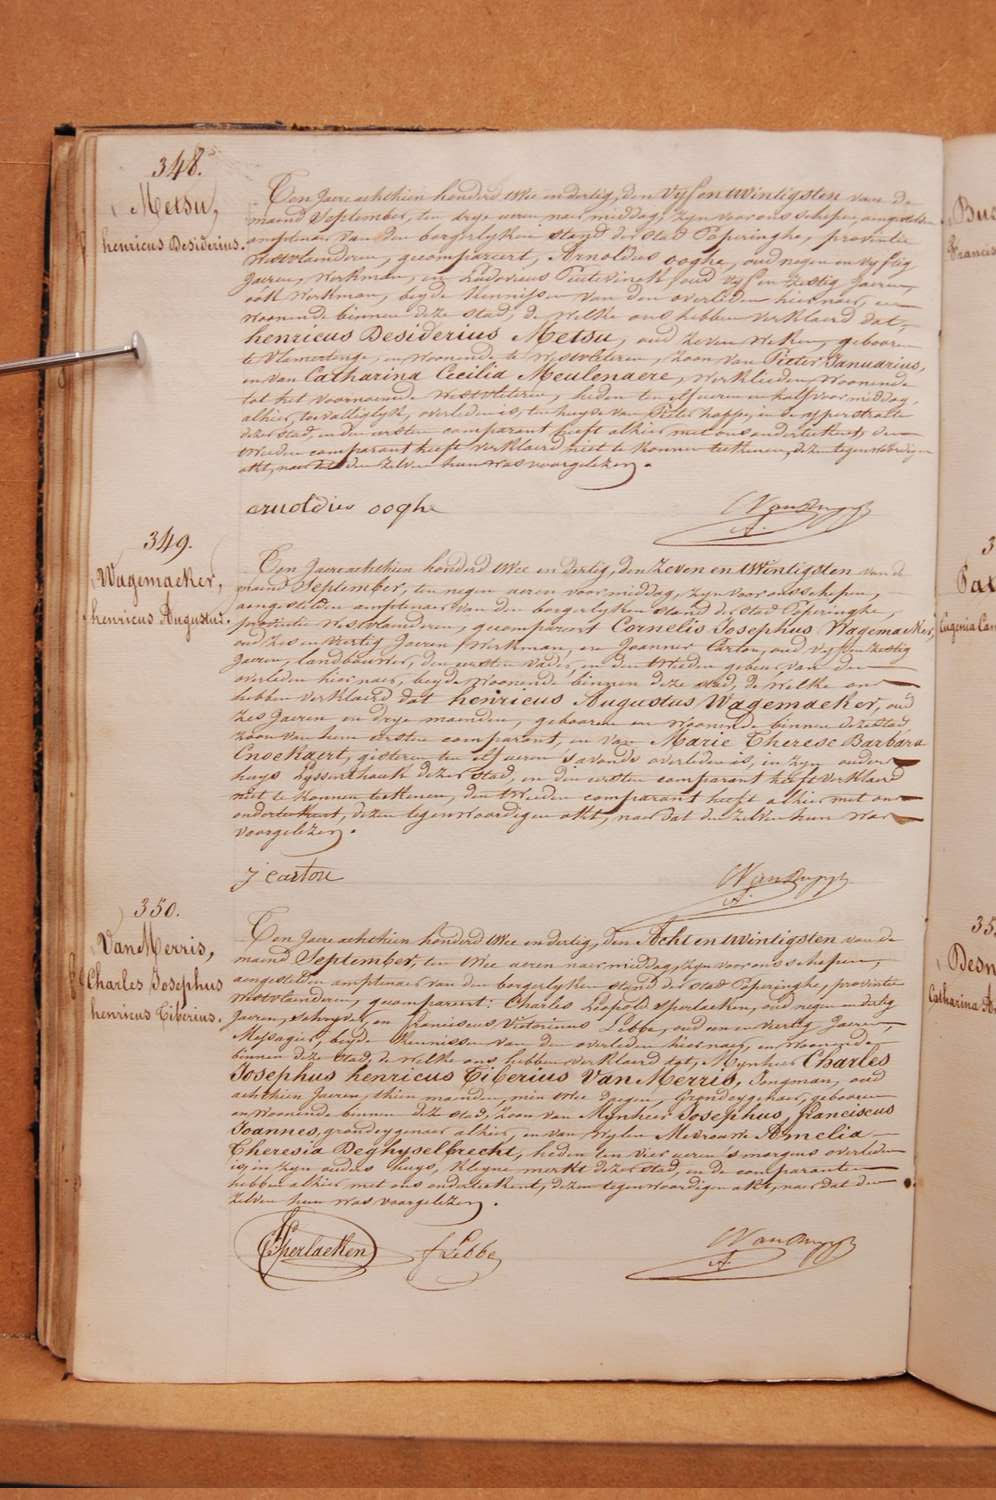 348.
Metsu,
henricus Desiderius.
Den Jaere achthien honderd twee en dertig, den vyf en twintigsten van de
maend September, ten drye ueren naer middag, zyn voor ons schepen, aengestelden
amptenaer van den borgerlyken stand der stad Poperinghe, provintie
Westvlaenderen, gecompareert, Arnoldus ooghe, oud negen en vyftig
Jaeren, werkman, en Ludovicus oud vyf en zestig Jaeren,
ook werkman, beyde kennissen van den overleden hier naer, en
woonende binnen deze stad, de welke ons hebben verklaerd dat,
henricus Desiderius Metsu, oud zeven weken, gebooren
te Vlamertinge, en woonende te Westvleteren, zoon van Pieter Januarius,
en van Catharina Cecilia Meulenaere, werklieden, woonende
tot het voornoemde Westvleteren, heden ten elf ueren en half voor middag,
alhier, toevalliglyk, overleden is, ten huyse van Pieter happe, in de yper straete
dezer stad, en den eersten comparant heeft alhier met ons onderteekent, den
tweeden comparant heeft verklaerd niet te konnen teekenen, dezen tegenwoordigen
akt, naer dat den zelven hun was voorgelezen.
arnoldus ooghe
349.
Wagemaeker,
henricus Augustus.
Den Jaere achthien honderd twee en dertig, den zeven en twintigsten van de
maend September, ten negen ueren voor middag, zyn voor ons schepen,
aengestelden amptenaer van den borgerlyken stand der stad Poperinghe,
provintie Westvlaenderen, gecompareert Cornelis Josephus Wagemaeker,
oud zes en veertig Jaeren, werkman, en Joannes Carton, oud vyf en zestig
Jaeren, landbouwer, den eersten vader, en den tweeden gebeur, van den
overleden hier naer, beyde woonende binnen deze stad, de welke ons
hebben verklaerd dat henricus Augustus Wagemaeker, oud
zes Jaeren en drye maenden, gebooren en woonende binnen deze stad,
zoon van hem eersten comparant, en van Marie Therese Barbara
gisteren ten elf ueren 's avonds overleden is, in zyn ouders
huys dezer stad, en den eersten comparant heeft verklaerd
niet te konnen teekenen, den tweeden comparant heeft alhier met ons
onderteekent, dezen tegenwoordigen akt, naer dat den zelven hun was
voorgelezen.
j carton
350.
Van Merris,
Charles Josephus
henricus Tiberius.
Den Jaere achthien honderd twee en dertig, den Acht en twintigsten van de
maend September, ten twee ueren naer middag, zyn voor ons schepen,
aengestelden amptenaer van den borgerlyken stand der stad Poperinghe, provintie
Westvlaenderen, gecompareert: Charles Leopold Sperlaeken, oud negen en dertig
Jaeren, schryver, en Franciscus Victorinus Lebbe, oud een en veertig Jaeren,
Messagier, beyde kennissen van den overleden hier naer, en woonende
binnen deze stad, de welke ons hebben verklaerd dat, Mynheer Charles
Josephus henricus Tiberius Van Merris, Jongman, oud
achthien Jaeren, thien maenden, min twee dagen, Grondeygenaer, gebooren
en woonende binnen deze stad, zoon van Mynheer Josephus, franciscus
Joannes, grondeygenaer alhier, en van wylen Mevrouwe Amelia
Theresia Deghyselbrecht, heden ten vier ueren 's morgens overleden
is, in zyn ouders huys, kleyne merkt dezer stad, en de comparanten
hebben alhier met ons onderteekent, dezen tegenwoordigen akt, naer dat den
zelven hun was voorgelezen.
Sperlaeken
f Lebbe